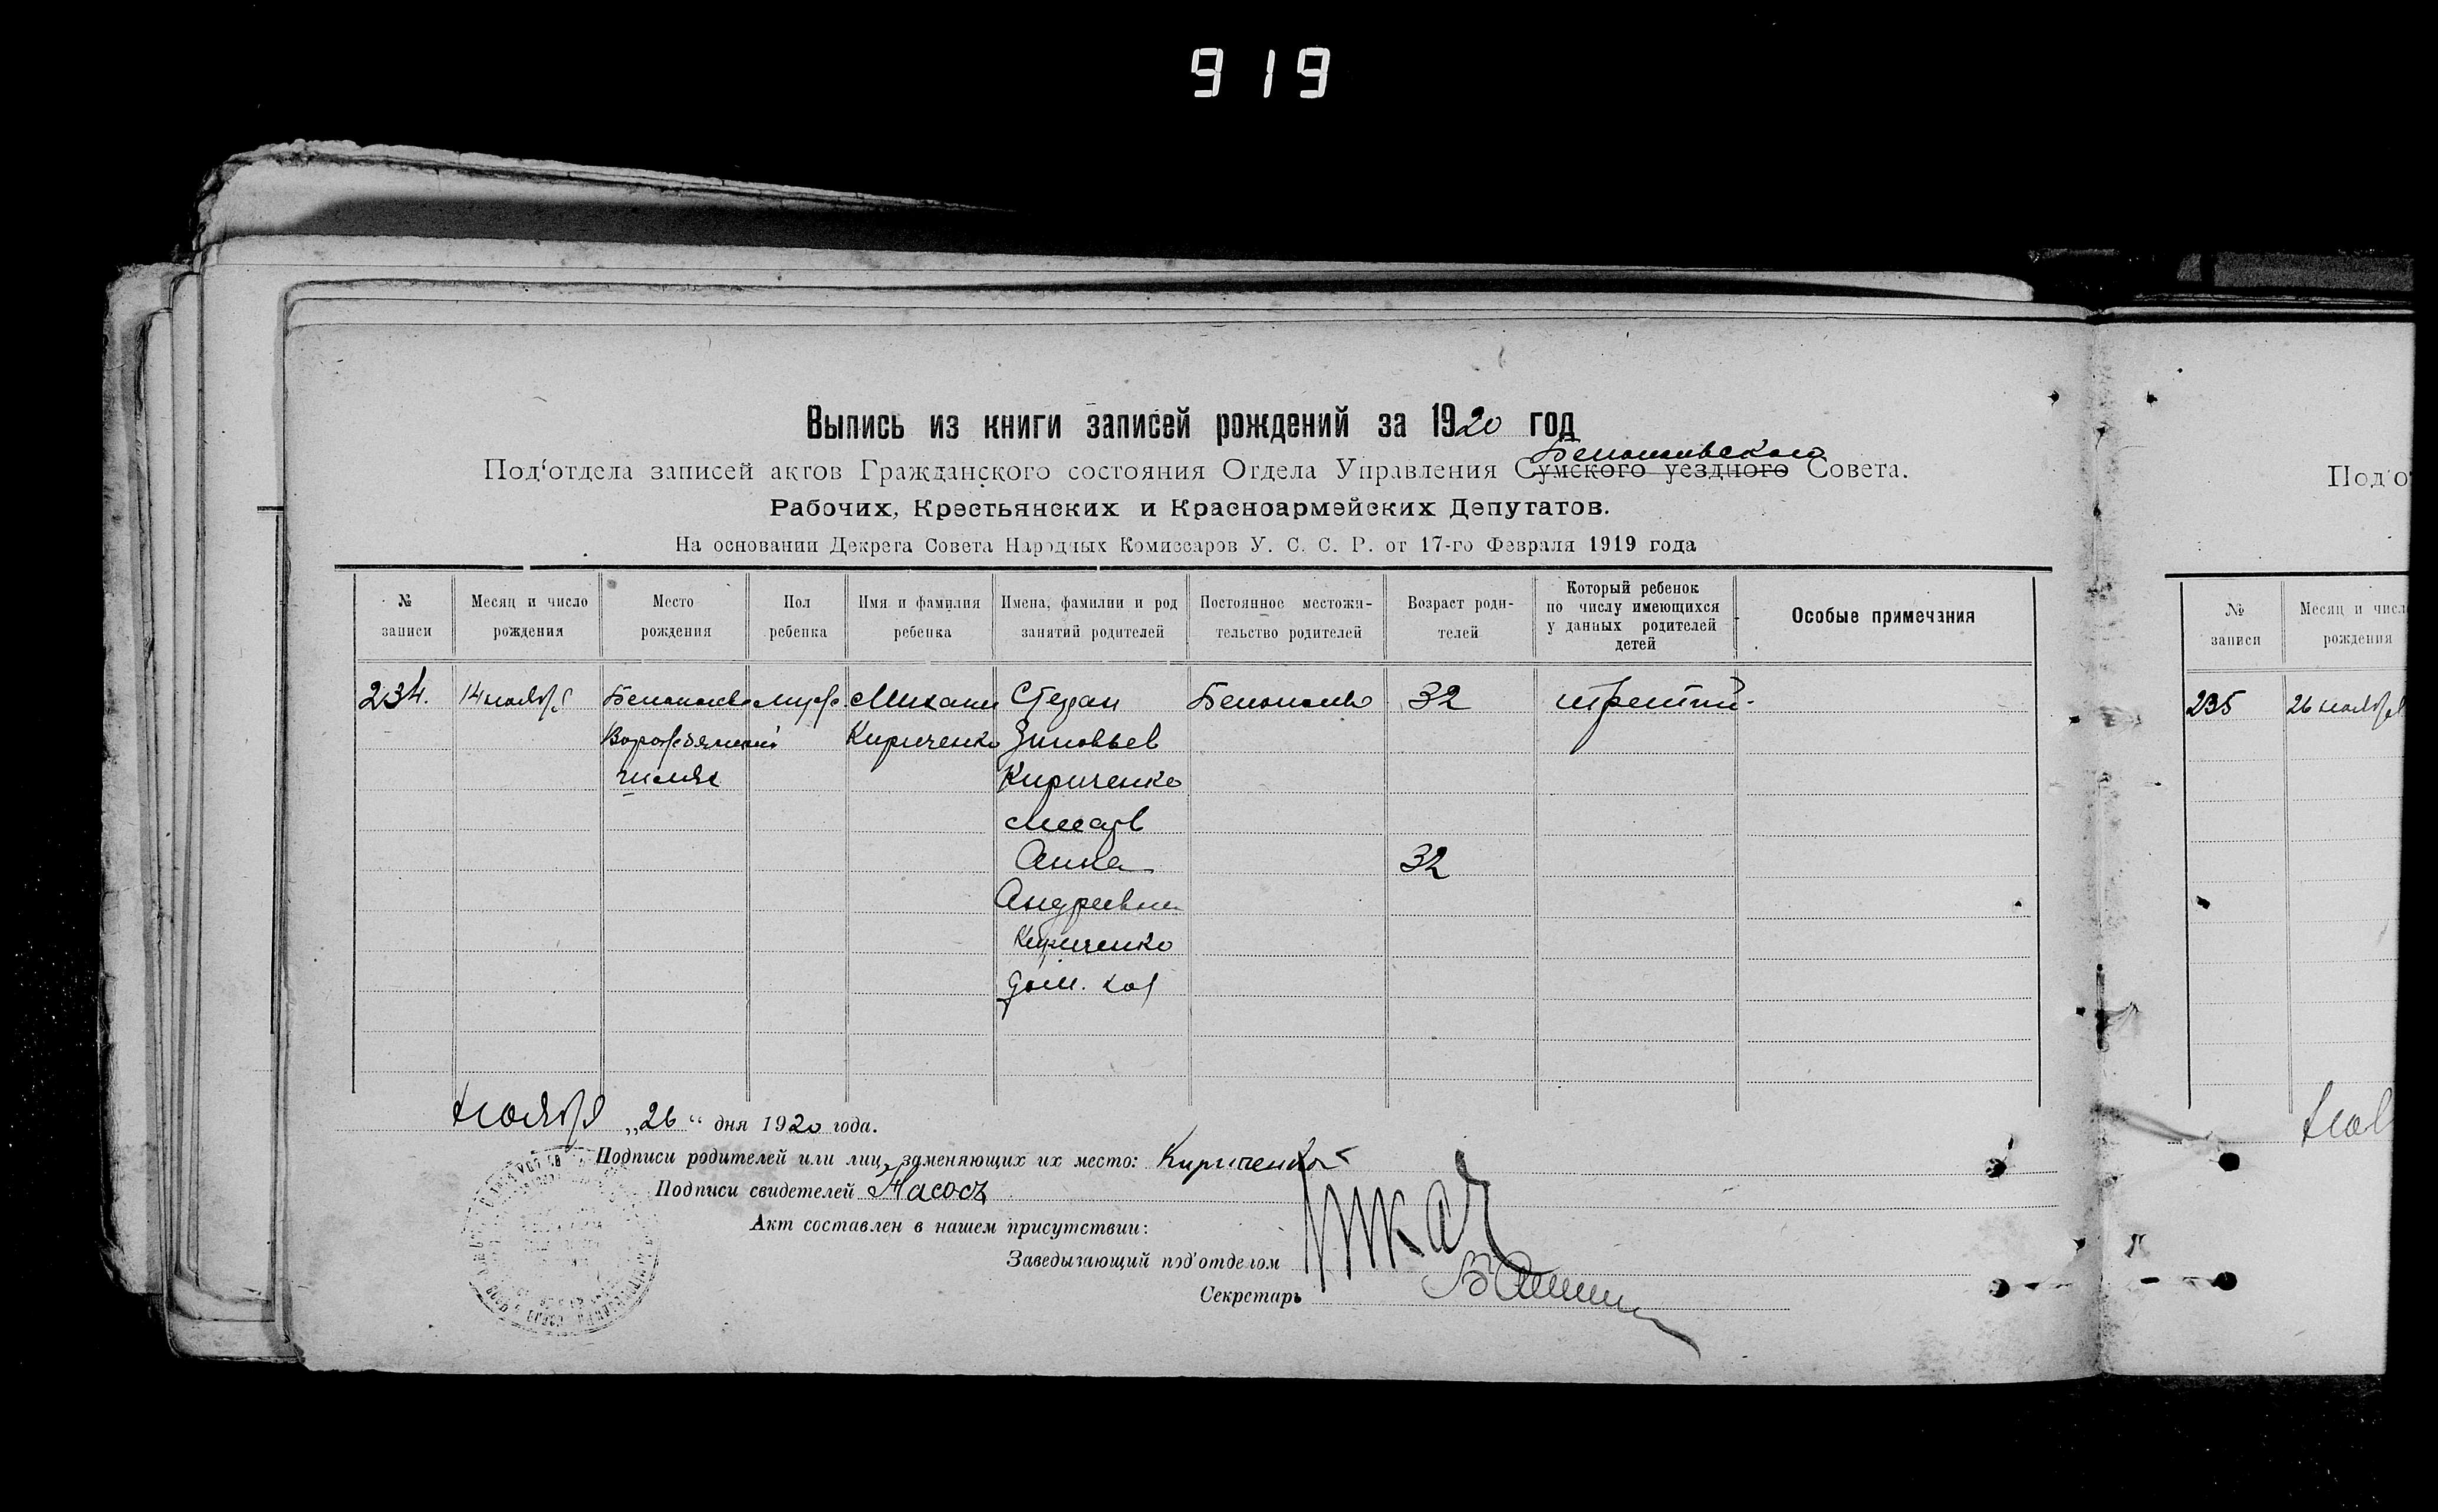 919
Выпись из книги записей рождений за 1920 год
Белопольского
Под'отдела записей актов Гражданского состояния Отдела Управления Сумского уездного Совета.
Рабочих, Крестьянских и Красноармейских Депутатов.
На основании Декрета Совета Народных Комиссаров У. С. С. Р. от 17-го Февраля 1919 года
№ записи
Месяц и число рождения
Место рождения
Пол ребенка
Имя и фамилия ребенка
Имена, фамилии и род занятий родителей
Постоянное местожительство родителей
Возраст родителей
Который ребенок по числу имеющихся у данных родителей детей
Особые примечания
234. 14 ноября Белополье муж. Михаил Стефан Белополье 32 третий
Кириченко Зиновьев
Кириченко
Анна 32
Андреевна
Кириченко
дом. хоз
Ноября „26“ дня 1920 года.
Подписи родителей или лиц, заменяющих их место: Кириченко
Подписи свидетелей Насосъ
Акт составлен в нашем присутствии:
Заведызающий под'отделом
Секретарь
Под'о
№ записи
Месяц и числ
рождения
235 26 ноября
Нояб